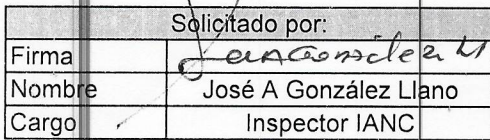 Solicitado por:
Firma
Nombre José A González Llano
Cargo Inspector IANC